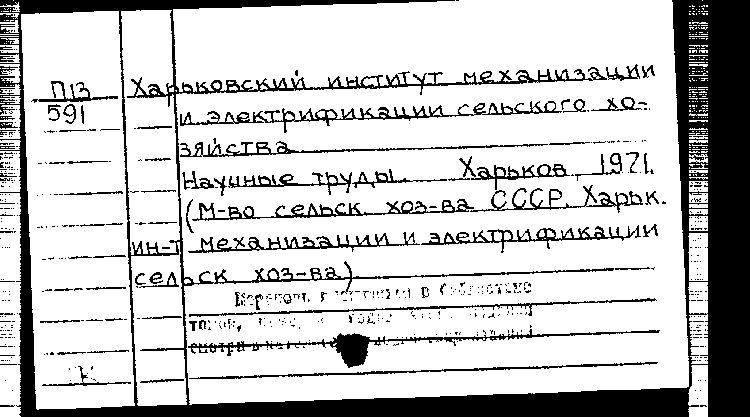 П13 Харьковский институт механизации
591 и электрификации сельского хо-
зяйства
Научные труды. Харьков, 1971.
(М-во сельск. хоз-ва СССР. Харьк.
ин-т механизации и электрификации
сельск. хоз-ва)
в библиотеке
томов,
смотри в